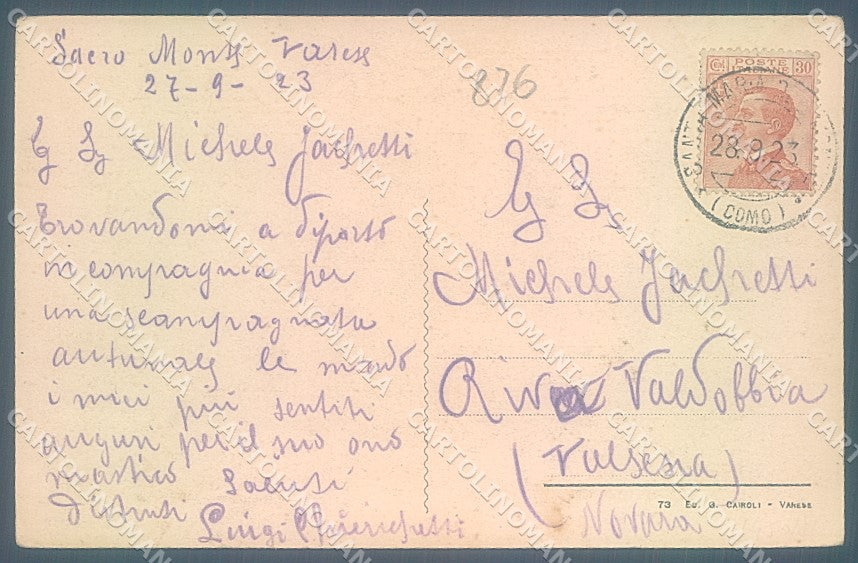 Sacro Monte Varese
27-9-23
Eg Sg Michele Jachetti
trovandomi a diporto
in compagnia per
una scampagnata
autunnale le mando
i miei più sentiti
auguri per il suo ono
mastico Saluti
Distinti
Luigi
876
Eg Sg
Michele Jachetti
Riva Valdobbia
(Valsesia)
Novara
POSTE ITALIANE
Cent 30
SANTA MARIA
28.9.23
(COMO)
73 ED. G. CAIROLI - VARESE
CARTOLINOMANIA